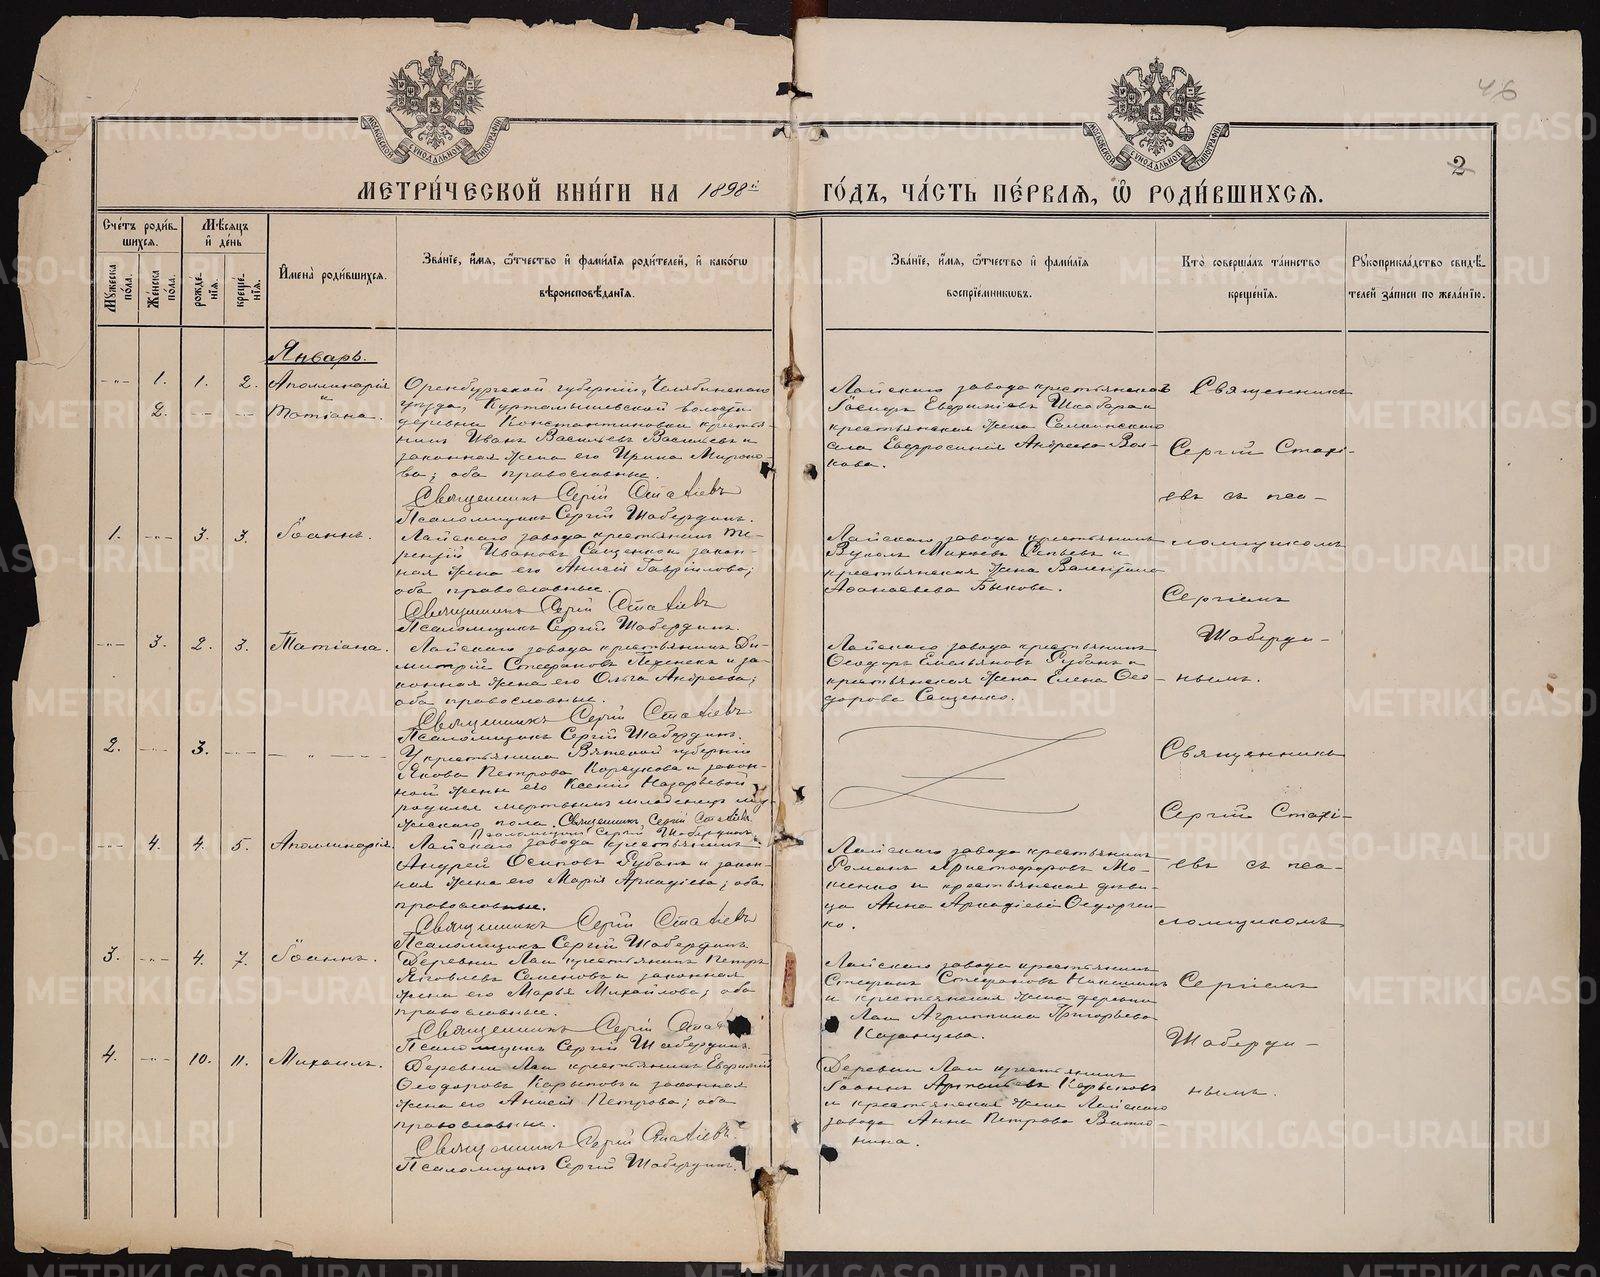 46
2
МОСКОВСКОЙ СУНОДАЛЬНОЙ ТИПОГРАФІИ
МОСКОВСКОЙ СУНОДАЛЬНОЙ ТИПОГРАФІИ
МЕТРИ́ЧЕСКОЙ КНИ́ГИ НА 1898й ГО́ДЪ, ЧА́СТЬ ПЕ́РВАѦ, Ѽ РОДИ́ВШИХСѦ.
Сче́тъ роди́вшихсѧ.
Мꙋ́жеска по́ла.
Же́нска по́ла.
Мѣ́сѧцъ и҆ де́нь
рожде́нїѧ.
креще́нїѧ.
И҆мена̀ роди́вшихсѧ.
Зва́нїе, и҆́мѧ, ѻ҆́тчество и҆ фами́лїѧ роди́телей, и҆ како́гѡ
вѣроисповѣ́данїѧ.
Зва́нїе, и҆́мѧ, ѻ҆́тчество и҆ фами́лїѧ
воспрїе́мникѡвъ.
Кто̀ соверша́лъ та́инство
креще́нїѧ.
Рꙋкоприкла́дство свидѣ́телей за́писи по жела́нїю.
Январь.
-"- 1. 1. 2. Аполлинарія
и
2. Татіана.
Оренбургской губерніи, Челябинскаго
уѣзда, Куртамышевской волости
деревни Константиновки крестья-
нинъ Иванъ Васильевъ Васильевъ и
законная жена его Ирина Мироно-
ва; оба православные.
Священникъ Сергій Стахіевъ
Псаломщикъ Сергій Шабердинъ.
Лайскаго завода крестьянинъ
Іосифъ Евѳиміевъ Шкабара и
крестьянская жена
села Евфросинія Андреева Вол-
кова.
Священникъ
Сергій Стахі-
евъ съ пса-
ломщикомъ
Сергіемъ
Шаберди-
нымъ.
1. -"- 3. 3. Іоаннъ.
Лайскаго завода крестьянинъ Те-
рентій Ивановъ Сащенко и закон-
ная жена его Анисія Гавріилова;
оба православные.
Священникъ Сергій Стахіевъ
Псаломщикъ Сергій Шабердинъ.
Лайскаго завода крестьянинъ
Вуколъ и
крестьянская жена Валентина
Аѳанасьева Быкова.
-"- 3. 2. 3. Татіана.
Лайскаго завода крестьянинъ Ди-
митрій Стефановъ и за-
конная жена его Ольга Андреева;
оба православные.
Священникъ Сергій Стахіевъ
Псаломщикъ Сергій Шабердинъ.
Лайскаго завода крестьянинъ
Ѳеодоръ Емельяновъ Рубанъ и
крестьянская жена Елена Ѳео-
дорова Сащенко.
2. 3. - " -
У крестьянина Вятской губерніи
Якова Петрова и закон-
ной жены его Ксеніи Назарьевой
родился мертвымъ младенецъ му-
жескаго пола. Священникъ Сергій Стахіевъ
Псаломщикъ Сергій Шабердинъ.
Священникъ
Сергій Стахі-
евъ съ пса-
ломщикомъ
Сергіемъ
Шаберди-
нымъ.
-"- 4. 4. 5. Аполлинарія.
Лайскаго завода крестьянинъ
Андрей Осиповъ Рубанъ и закон-
ная жена его Марія Аркадіева; оба
православные.
Священникъ Сергій Стахіевъ
Псаломщикъ Сергій Шабердинъ.
Лайскаго завода крестьянинъ
Романъ Христофоровъ Мо-
шенко и крестьянская дѣви-
ца Анна Аркадіева Ѳедорчен-
ко.
3. -"- 4. 7. Іоаннъ.
Деревни Лаи крестьянинъ Петръ
Яковлевъ Семеновъ и законная
жена его Марья Михайлова; оба
православные.
Священникъ Сергій
Псаломщикъ Сергій Шабердинъ.
Лайскаго завода крестьянинъ
Стефанъ Стефановъ
и крестьянская жена деревни
Лаи Агриппина Григорьева
Казанцева.
4. -"- 10. 11. Михаилъ.
Деревни Лаи крестьянинъ Евѳимій
Ѳеодоровъ Карыповъ и законная
жена его Анисія Петрова; оба
православные.
Священникъ Сергій Стахіевъ.
Псаломщикъ Сергій Шабердинъ.
Деревни Лаи крестьянинъ
Іоаннъ Карыповъ
и крестьянская жена Лайскаго
завода Анна Петрова
METRIKI.GASO-URAL.RU